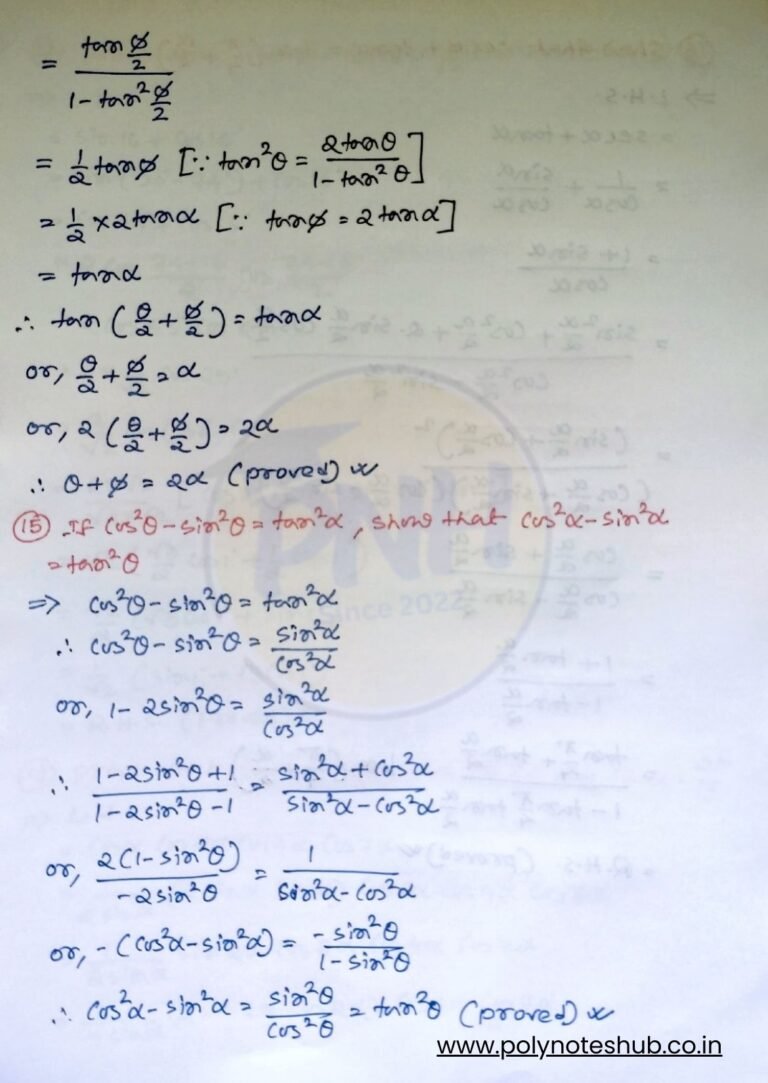 = tan ø/2 / 1 - tan² ø/2
= 1/2 tanø [∵ tan²θ = 2tanθ / 1 - tan²θ]
= 1/2 × 2tanα [∵ tanø = 2tanα]
= tanα
∴ tan (θ/2 + ø/2) = tanα
or, θ/2 + ø/2 = α
or, 2 (θ/2 + ø/2) = 2α
∴ θ + ø = 2α (proved)
⑮ If cos²θ - sin²θ = tan²α, show that cos²α - sin²α
= tan²θ
⇒ cos²θ - sin²θ = tan²α
∴ cos²θ - sin²θ = sin²α / cos²α
or, 1 - 2sin²θ = sin²α / cos²α
∴ 1 - 2sin²θ + 1 / 1 - 2sin²θ - 1 = sin²α + cos²α / sin²α - cos²α
or, 2(1 - sin²θ) / -2sin²θ = 1 / sin²α - cos²α
or, -(cos²α - sin²α) = -sin²θ / 1 - sin²θ
∴ cos²α - sin²α = sin²θ / cos²θ = tan²θ (proved)
PNH
Since 2022
www.polynoteshub.co.in